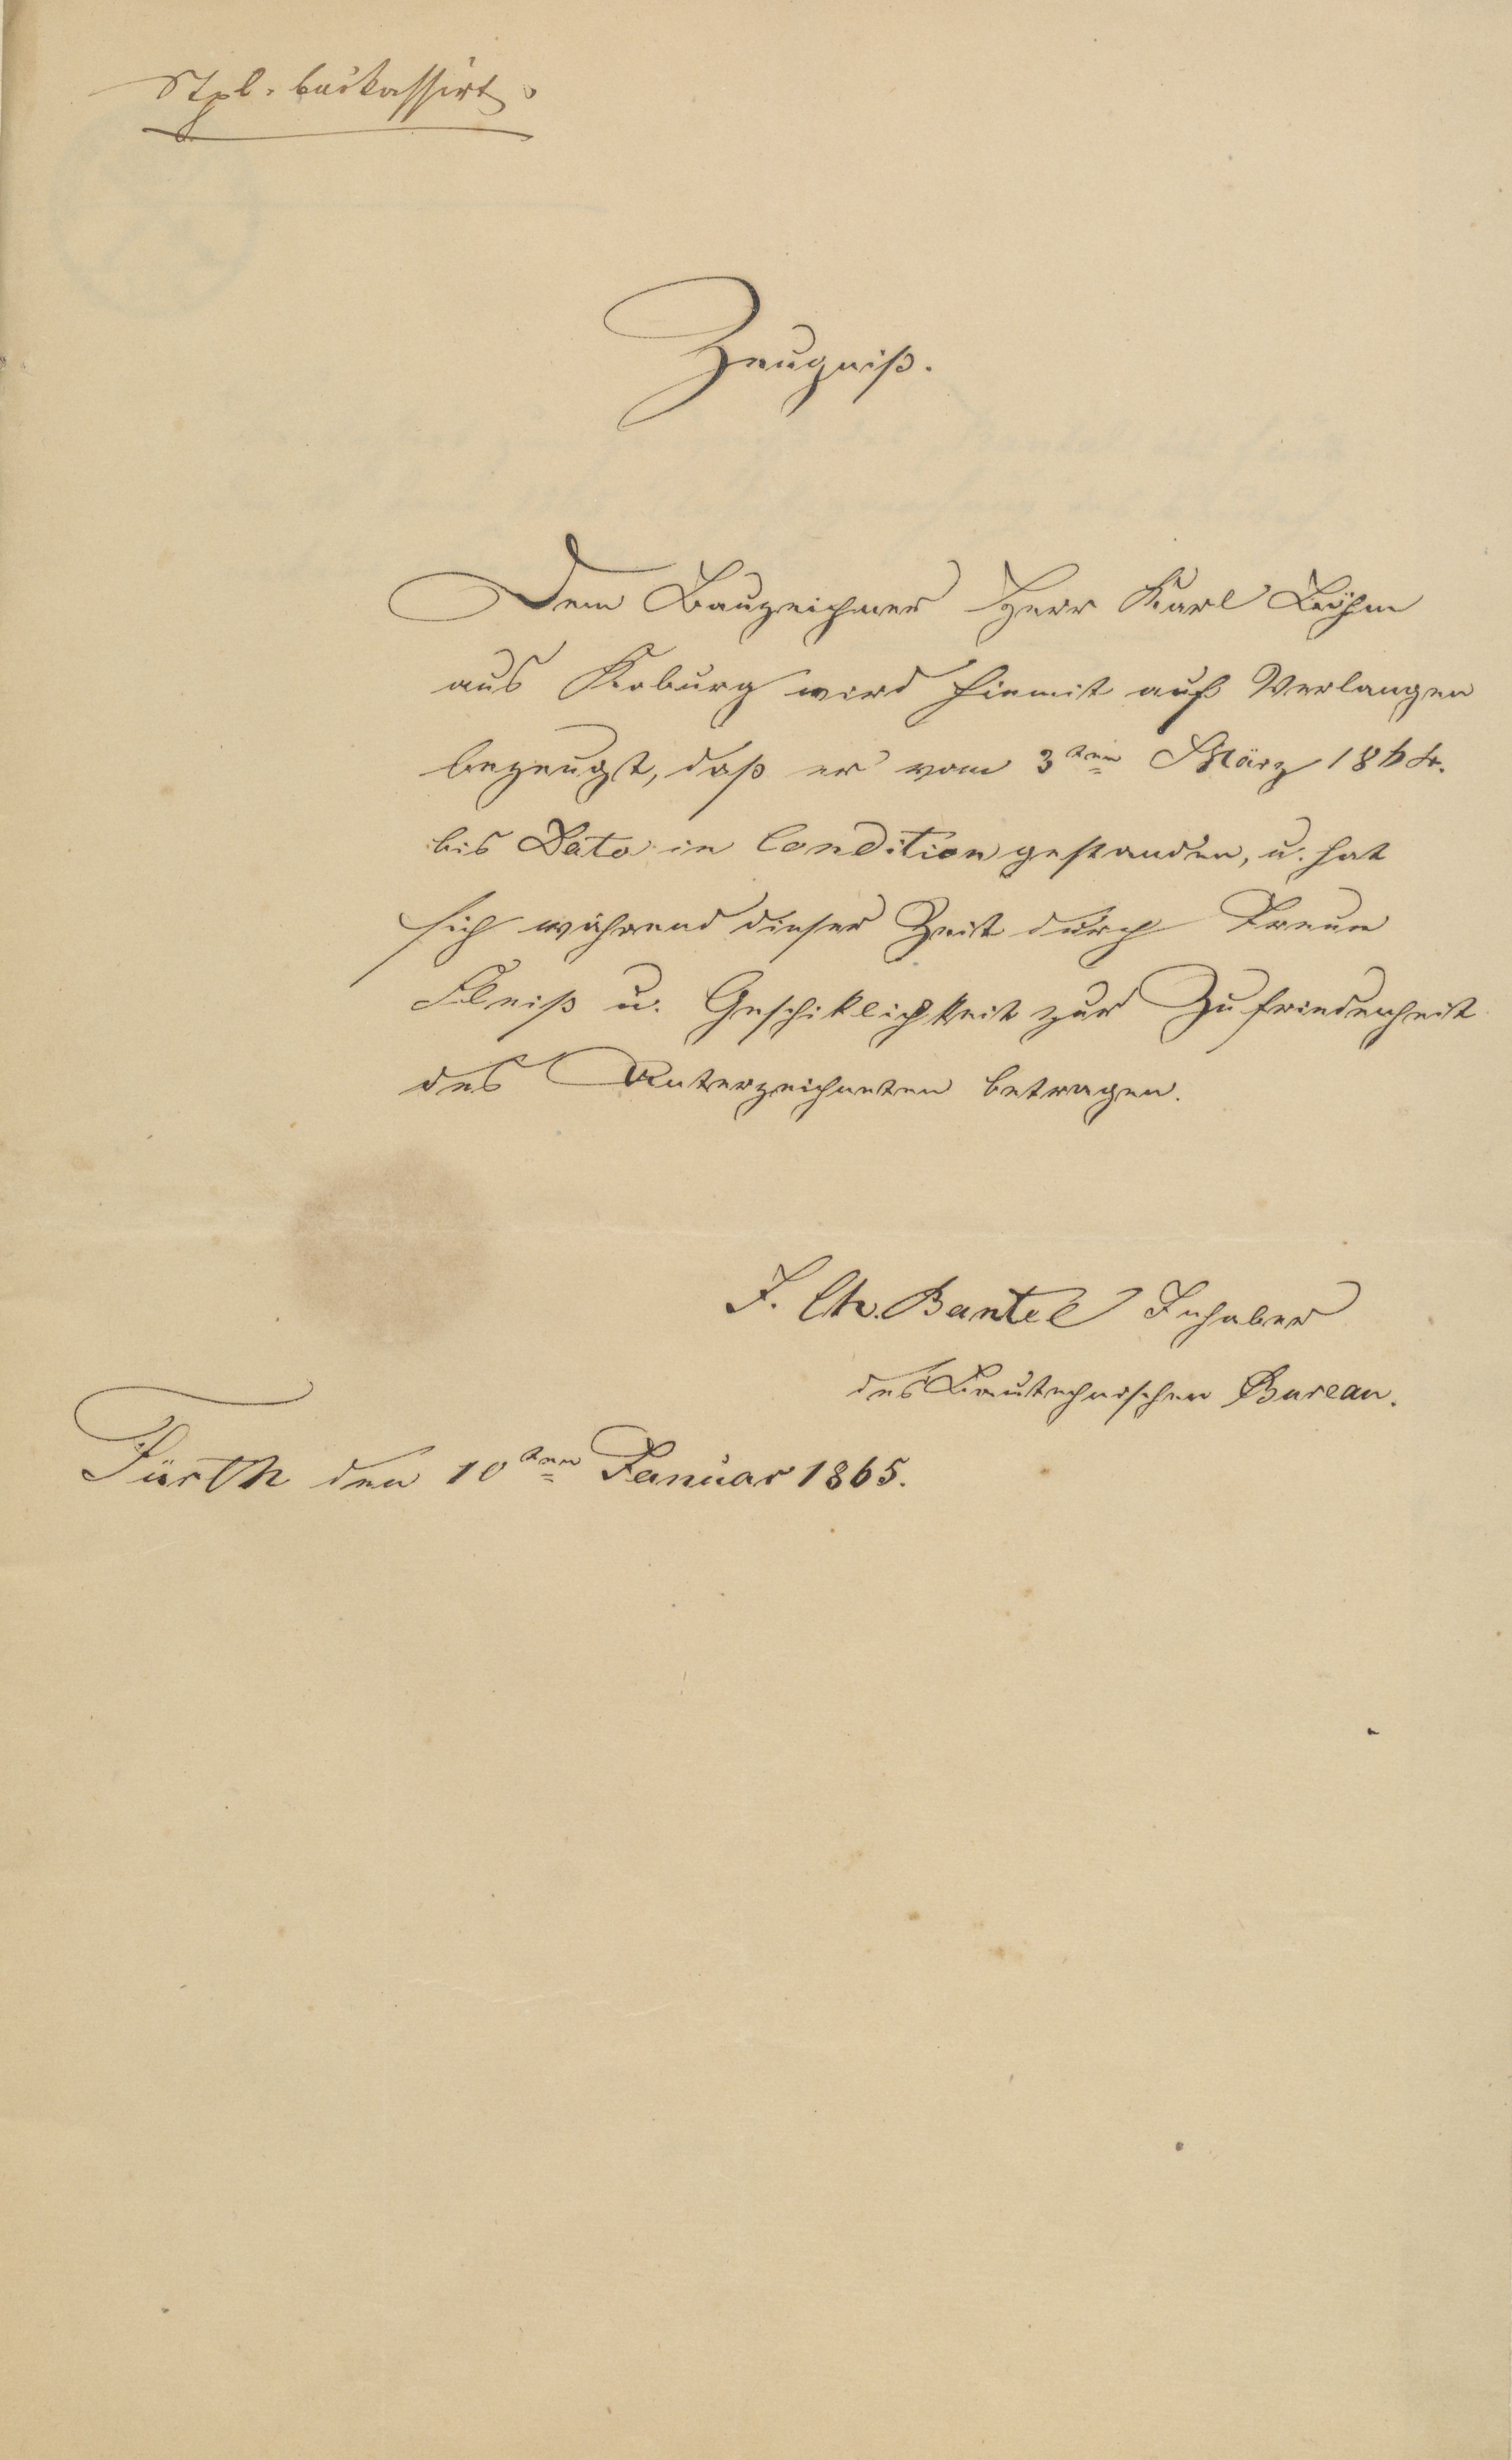 Stpl. baikassirt.
Zeugniß.
Dem Bauzeichner Herr Karl Böhm
aus Koburg wird hiemit auf Verlangen
bezeugt, daß er vom 3ten März 1864.
bis Dato in Condition gestanden, u. hat
sich während dieser Zeit durch Treue
Fleiß u. Geschiklichkeit zur Zufriedenheit
des Unterzeichneten betragen.
J. Ch. Bantel Inhaber
des Bautechnischen Bureau.
Fürth den 10ten Januar 1865.